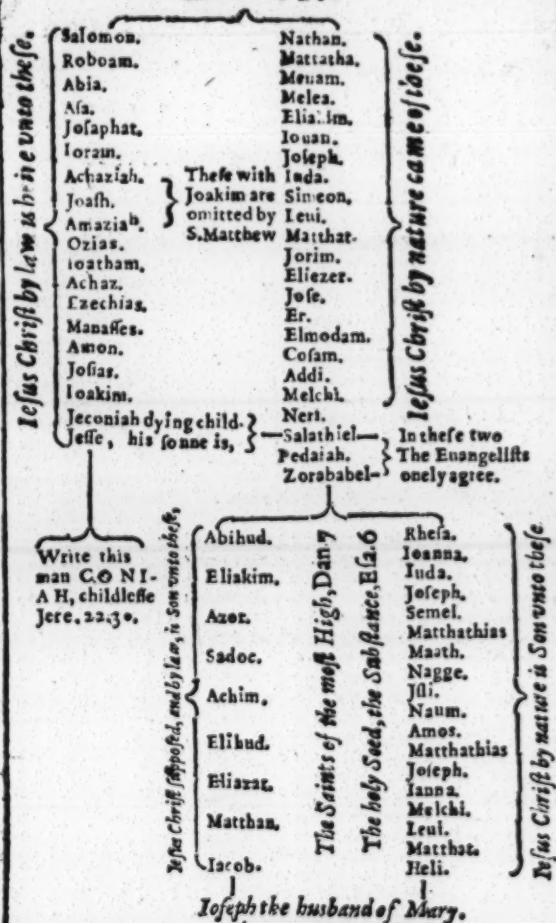 Iesus Christ by law is heire vnto these.
Salomon.
Roboam.
Abia.
Asa.
Josaphat.
Ioram.
Achaziah.
Joash.
Amaziah.
Ozias.
Ioatham.
Achaz.
Ezechias.
Manasses.
Amon.
Josias.
Ioakim.
Jeconiah dying child-
lesse, his sonne is,
These with
Joakim are
omitted by
S.Matthew
Nathan.
Mattatha.
Menam.
Melea.
Eliakim.
Ionan.
Joseph.
Iuda.
Simeon.
Leui.
Matthat.
Jorim.
Eliezer.
Jose.
Er.
Elmodam.
Cosam.
Addi.
Melchi.
Neri.
Salathiel
Pedaiah.
Zorababel
Iesus Christ by nature came of these.
In these two
The Euangelists
onely agree.
Write this
man CONI-
AH, childlesse
Jere. 22.30.
Iesus Christ supposed, and by law, is Son vnto these,
Abihud.
Eliakim.
Azor.
Sadoc.
Achim.
Elihud.
Eliazar.
Matthan.
Iacob.
The Saints of the most High, Dan.7
The holy Seed, the Substance, Esa.6
Rhesa.
Ioanna.
Iuda.
Joseph.
Semei.
Matthathias
Maath.
Nagge.
Jsli.
Naum.
Amos.
Matthathias
Joseph.
Ianna.
Melchi.
Leui.
Matthat.
Heli.
Iesus Christ by nature is Son vnto these
Ioseph the husband of Mary.